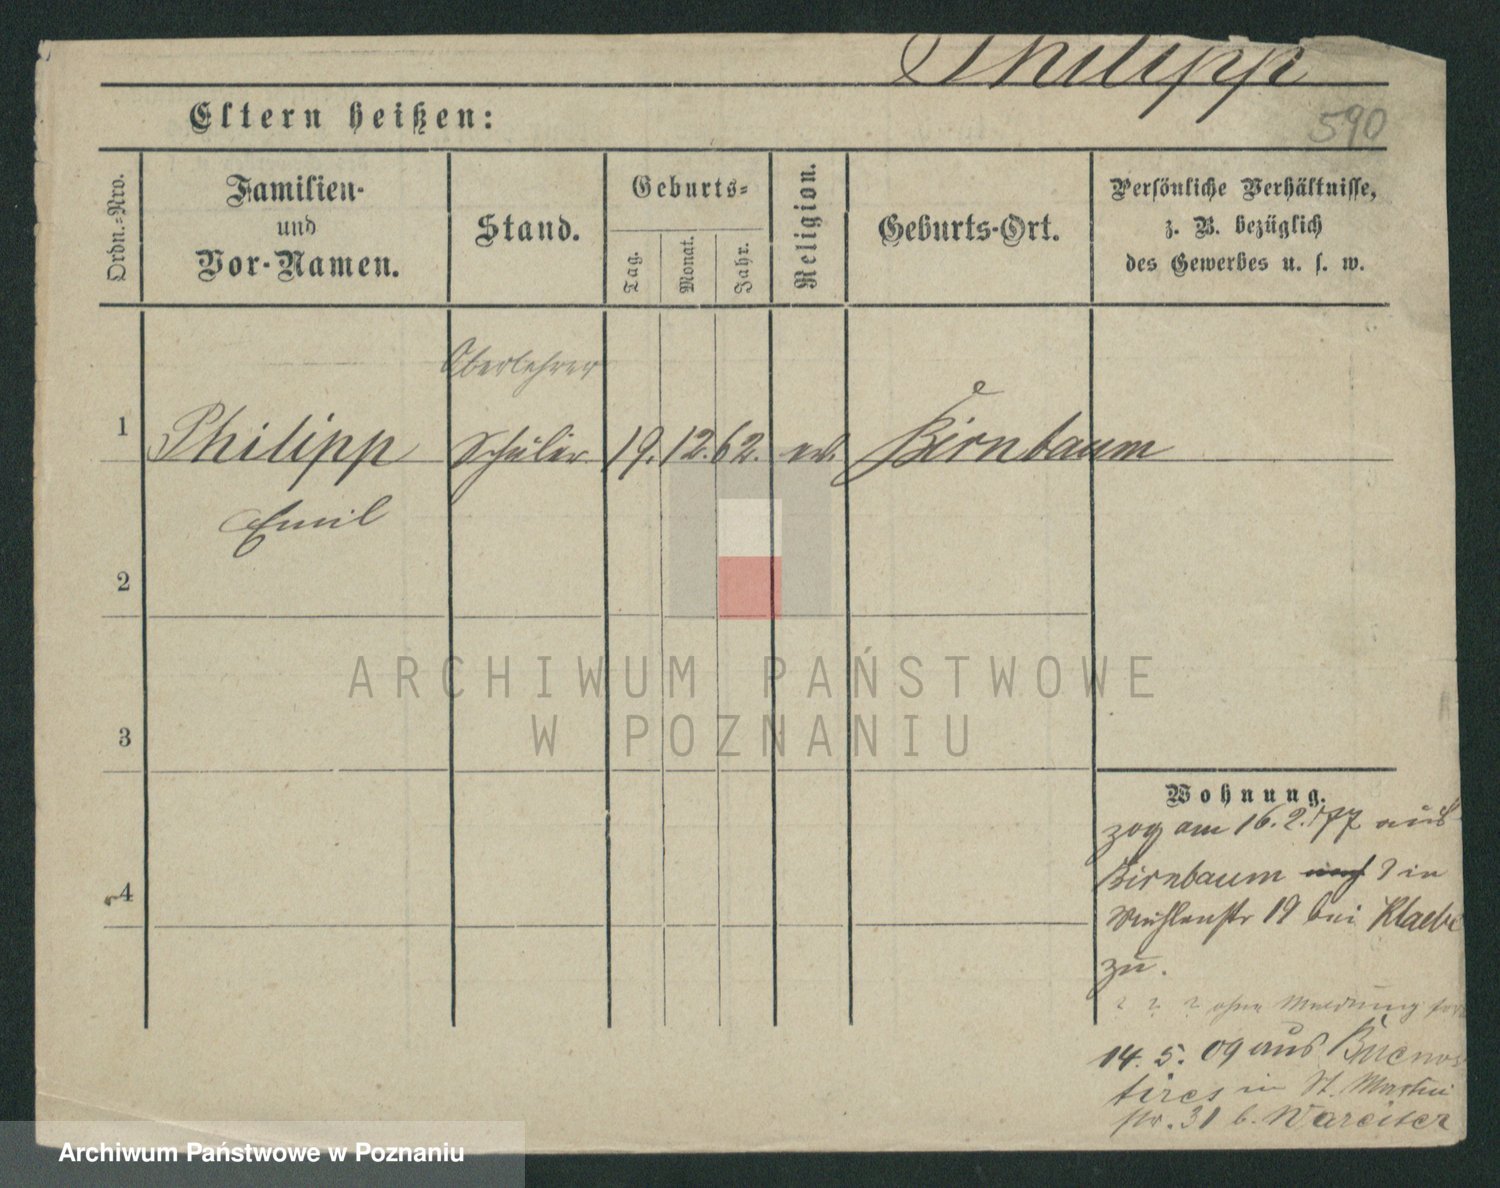 Philipp
Eltern heißen:
590
Ordn.=Nro.
Familien-
und
Vor-Namen.
Stand.
Geburts=
Tag.
Monat.
Jahr.
Religion.
Geburts-Ort.
Persönliche Verhältnisse,
z. B. bezüglich
des Gewerbes u. s. w.
Oberlehrer
1 Philipp Schüler 19. 12. 62. ev. Birnbaum
Emil
2
3
4
Wohnung.
zog am 16.2.77 aus
Birnbaum in
Mühlenstr 19 bei Klaebe
zu.
? ? ? ohne Meldung fort
14. 5. 09 aus Buenos
Aires in St. Martin
str. 31 b.
ARCHIWUM PAŃSTWOWE
W POZNANIU
Archiwum Państwowe w Poznaniu